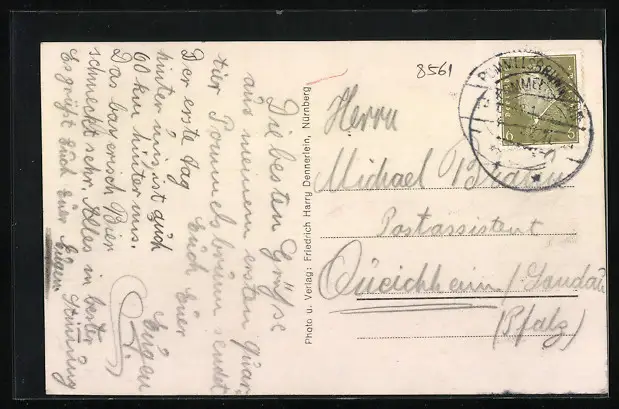 Die besten Grüße
aus meinem ersten Quar-
tier Pommelsbrunn sendet
Euch Euer
Eugen
Der erste Tag
hinter uns ist auch
60 km hinter uns.
Das bayerisch Bier
schmeckt sehr. Alles in bester
Stimmung
Es grüßt Euch Euer Eugen
Photo u. Verlag: Friedrich Harry Dennerlein, Nürnberg
8561
POMMELSBRUNN
6 6
Herrn
Michael
Postassistent
Queichheim / Landau
(Pfalz)